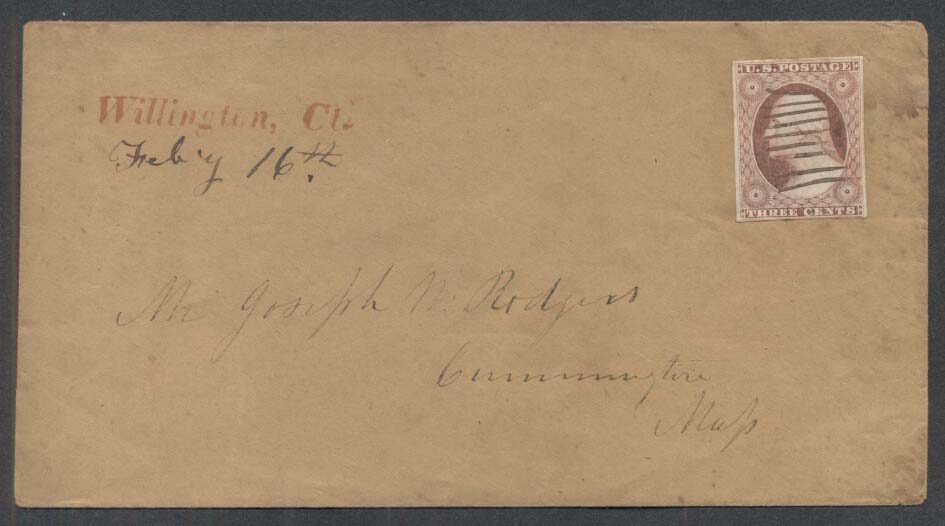 Willington, Ct.
Feb'y 16th.
U.S. POSTAGE
THREE CENTS
Mr Joseph W. Rodgers
Cummington
Mass